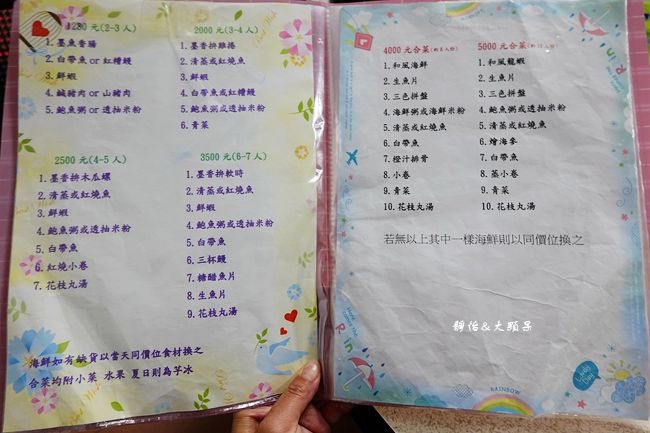 1280元(2-3人)
1. 墨魚香腸
2. 白帶魚or紅糟鰻
3. 鮮蝦
4. 鹹豬肉or山豬肉
5. 鮑魚粥or透抽米粉
2000元(3-4人)
1. 墨香拚雞捲
2. 清蒸或紅燒魚
3. 鮮蝦
4. 白帶魚或紅糟鰻
5. 鮑魚粥或透抽米粉
6. 青菜
2500元(4-5人)
1. 墨香拚木瓜螺
2. 清蒸或紅燒魚
3. 鮮蝦
4. 鮑魚粥或透抽米粉
5. 白帶魚
6. 紅燒小卷
7. 花枝丸湯
3500元(6-7人)
1. 墨香拚軟時
2. 清蒸或紅燒魚
3. 鮮蝦
4. 鮑魚粥或透抽米粉
5. 白帶魚
6. 三杯鰻
7. 糖醋魚片
8. 生魚片
9. 花枝丸湯
海鮮如有缺貨以當天同價位食材換之
合菜均附小菜 水果 夏日則為芋冰
4000元合菜(約8人份)
1. 和風海鮮
2. 生魚片
3. 三色拼盤
4. 海鮮粥或海鮮米粉
5. 清蒸或紅燒魚
6. 白帶魚
7. 橙汁排骨
8. 小卷
9. 青菜
10. 花枝丸湯
5000元合菜(約10人份)
1. 和風龍蝦
2. 生魚片
3. 三色拼盤
4. 鮑魚粥或透抽米粉
5. 清蒸或紅燒魚
6. 燴海參
7. 白帶魚
8. 蒸小卷
9. 青菜
10. 花枝丸湯
若無以上其中一樣海鮮則以同價位換之
靜怡&大顆呆
RAINBOW
Lucky Day